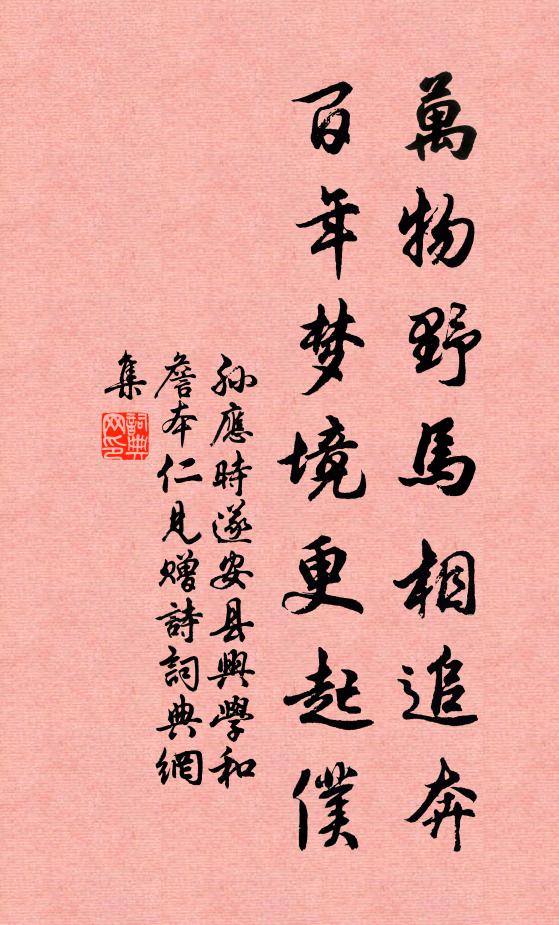 萬物野馬相追奔
百年梦境更起僕
孙應時遂安县興學和
詹本仁見贈詩詞典網
集
詞典
网印